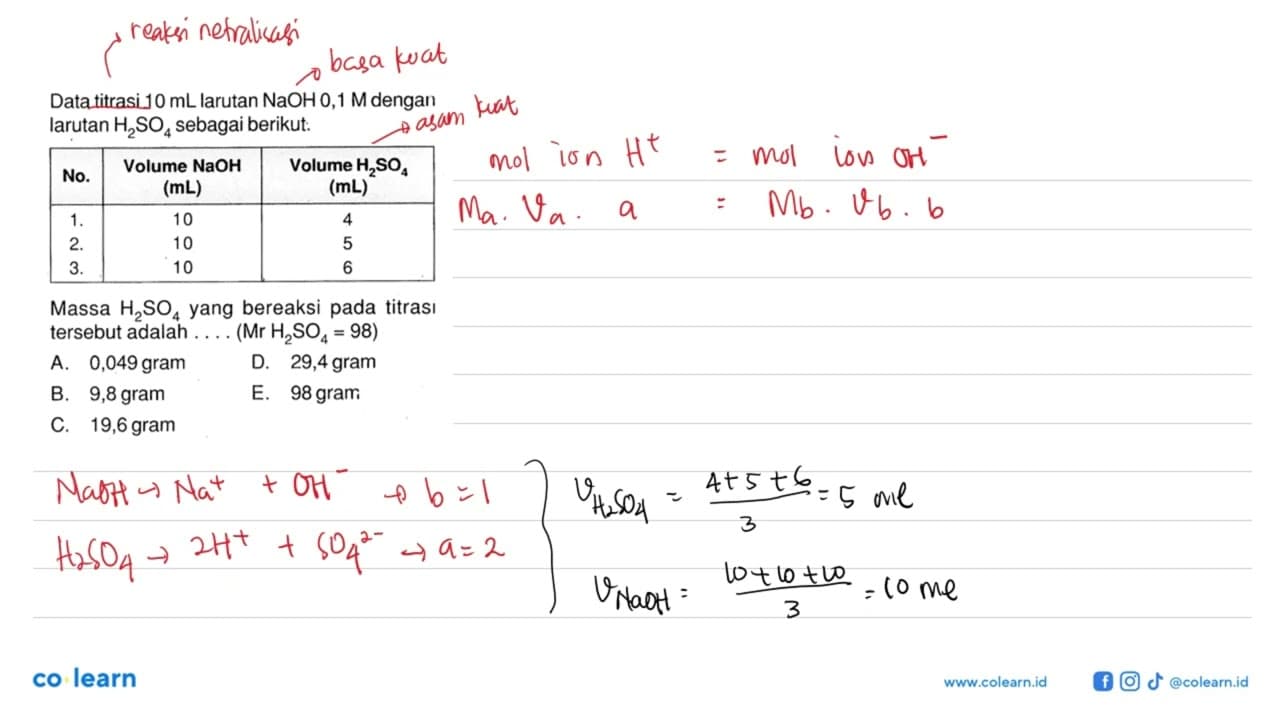 reaksi netralisasi
basa kuat
Data titrasi 10 mL larutan NaOH 0,1 M dengan
larutan H₂SO₄ sebagai berikut.
asam kuat
No. Volume NaOH (mL) Volume H₂SO₄ (mL)
1. 10 4
2. 10 5
3. 10 6
mol ion H⁺ = mol ion OH⁻
Ma. Va. a = Mb. Vb. b
Massa H₂SO₄ yang bereaksi pada titrasi
tersebut adalah . . . . (Mr H₂SO₄ = 98)
A. 0,049 gram D. 29,4 gram
B. 9,8 gram E. 98 gram
C. 19,6 gram
NaOH → Na⁺ + OH⁻ → b = 1
H₂SO₄ → 2H⁺ + SO₄²⁻ → a = 2
V H₂SO₄ = (4+5+6)/3 = 5 ml
V NaOH = (10+10+10)/3 = 10 ml
co learn
www.colearn.id
@colearn.id